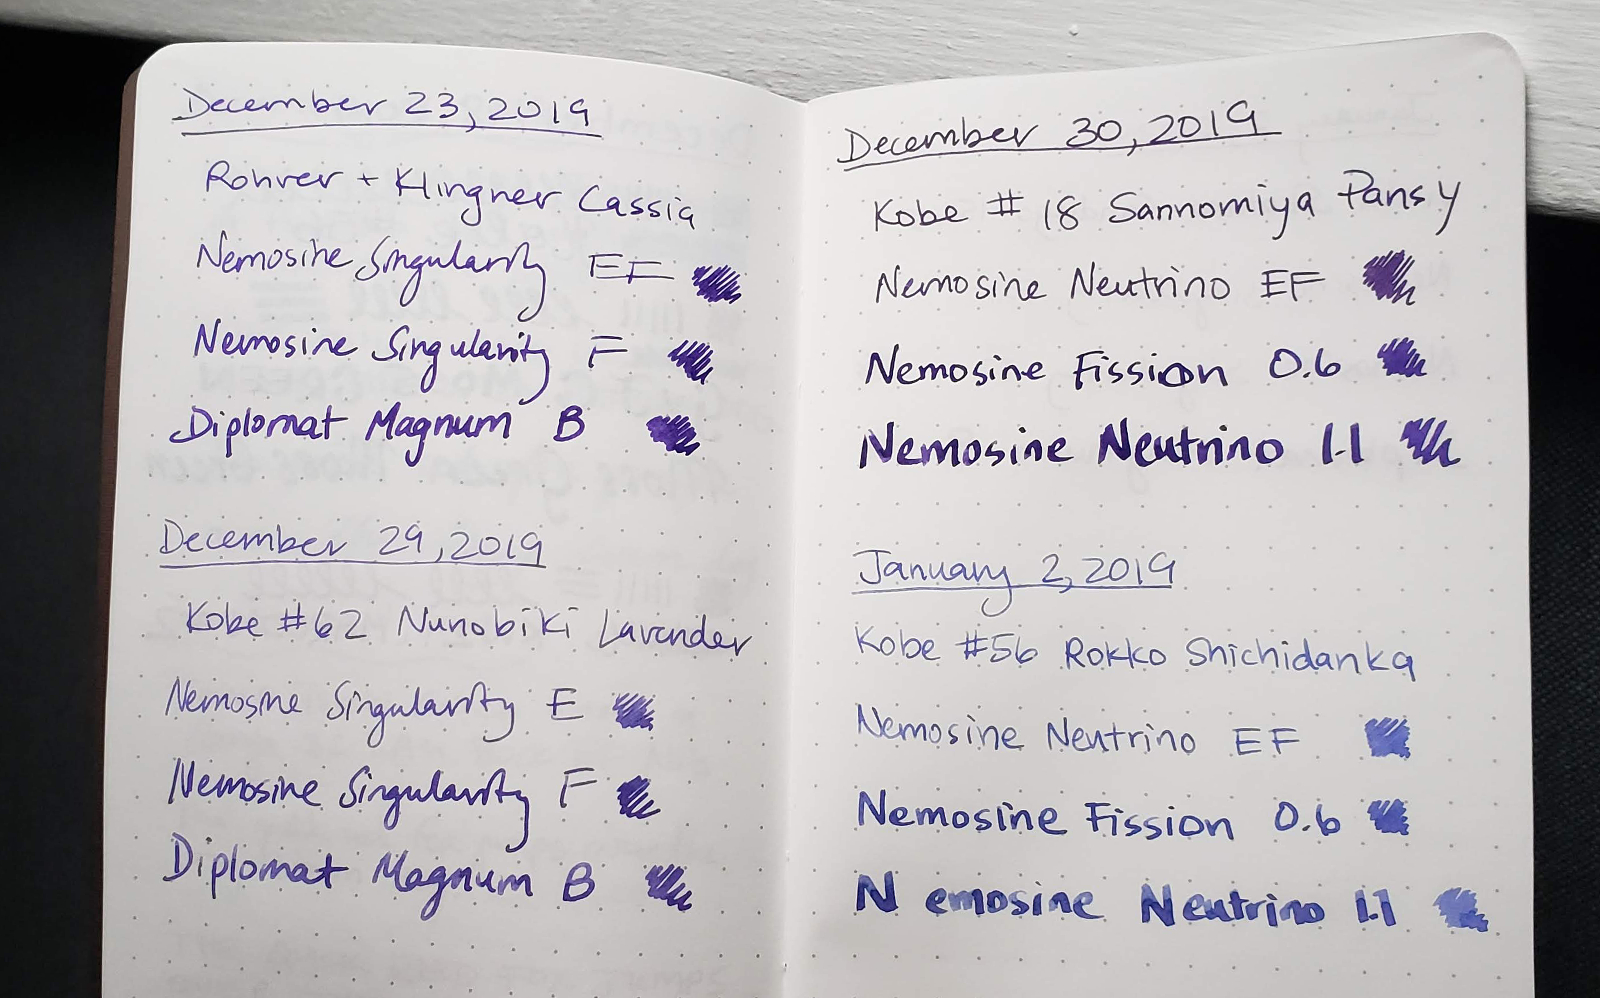 December 23, 2019
Rohrer + Klingner Cassia
Nemosine Singularity EF
Nemosine Singularity F
Diplomat Magnum B
December 29, 2019
Kobe #62 Nunobiki Lavender
Nemosine Singularity E
Nemosine Singularity F
Diplomat Magnum B
December 30, 2019
Kobe #18 Sannomiya Pansy
Nemosine Neutrino EF
Nemosine Fission 0.6
Nemosine Neutrino 1.1
January 2, 2019
Kobe #56 Rokko Shichidanka
Nemosine Neutrino EF
Nemosine Fission 0.6
Nemosine Neutrino 1.1